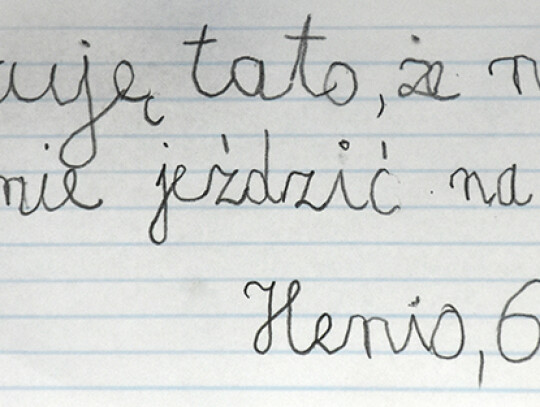 uję tato, że n
nie jeździć na
Henio, 6